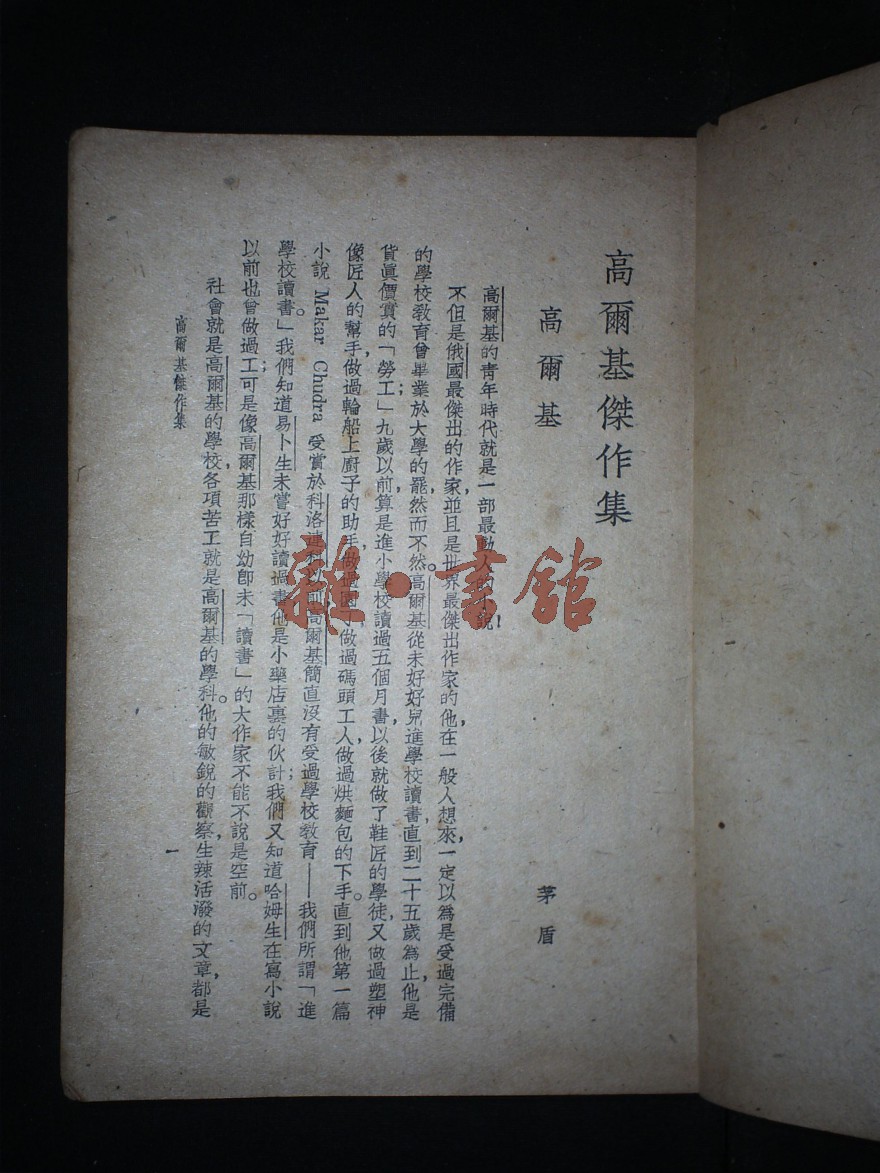 高爾基傑作集
高爾基
茅盾
高爾基的靑年時代就是一部最動人的小說！
不但是俄國最傑出的作家，並且是世界最傑出作家的他，在一般人想來，一定以爲是受過完備
的學校敎育，曾畢業於大學的罷；然而不然。高爾基從未好好兒進學校讀書，直到二十五歲爲止，他是
貨眞價實的「勞工」，九歲以前算是進小學校讀過五個月書，以後就做了鞋匠的學徒，又做過塑神
像匠人的幫手，做過輪船上廚子的助手，做過園丁，做過碼頭工人，做過烘麵包的下手。直到他第一篇
小說 Makar Chudra 受賞於科洛連科以前，高爾基簡直沒有受過學校敎育——我們所謂「進
學校讀書。」我們知道易卜生未嘗好好讀過書，他是小藥店裏的伙計；我們又知道哈姆生在寫小說
以前也曾做過工；可是像高爾基那樣自幼卽未「讀書」的大作家不能不說是空前。
社會就是高爾基的學校，各項苦工就是高爾基的學科。他的敏銳的觀察，生辣活潑的文章，都是
高爾基傑作集
一
雜·書館